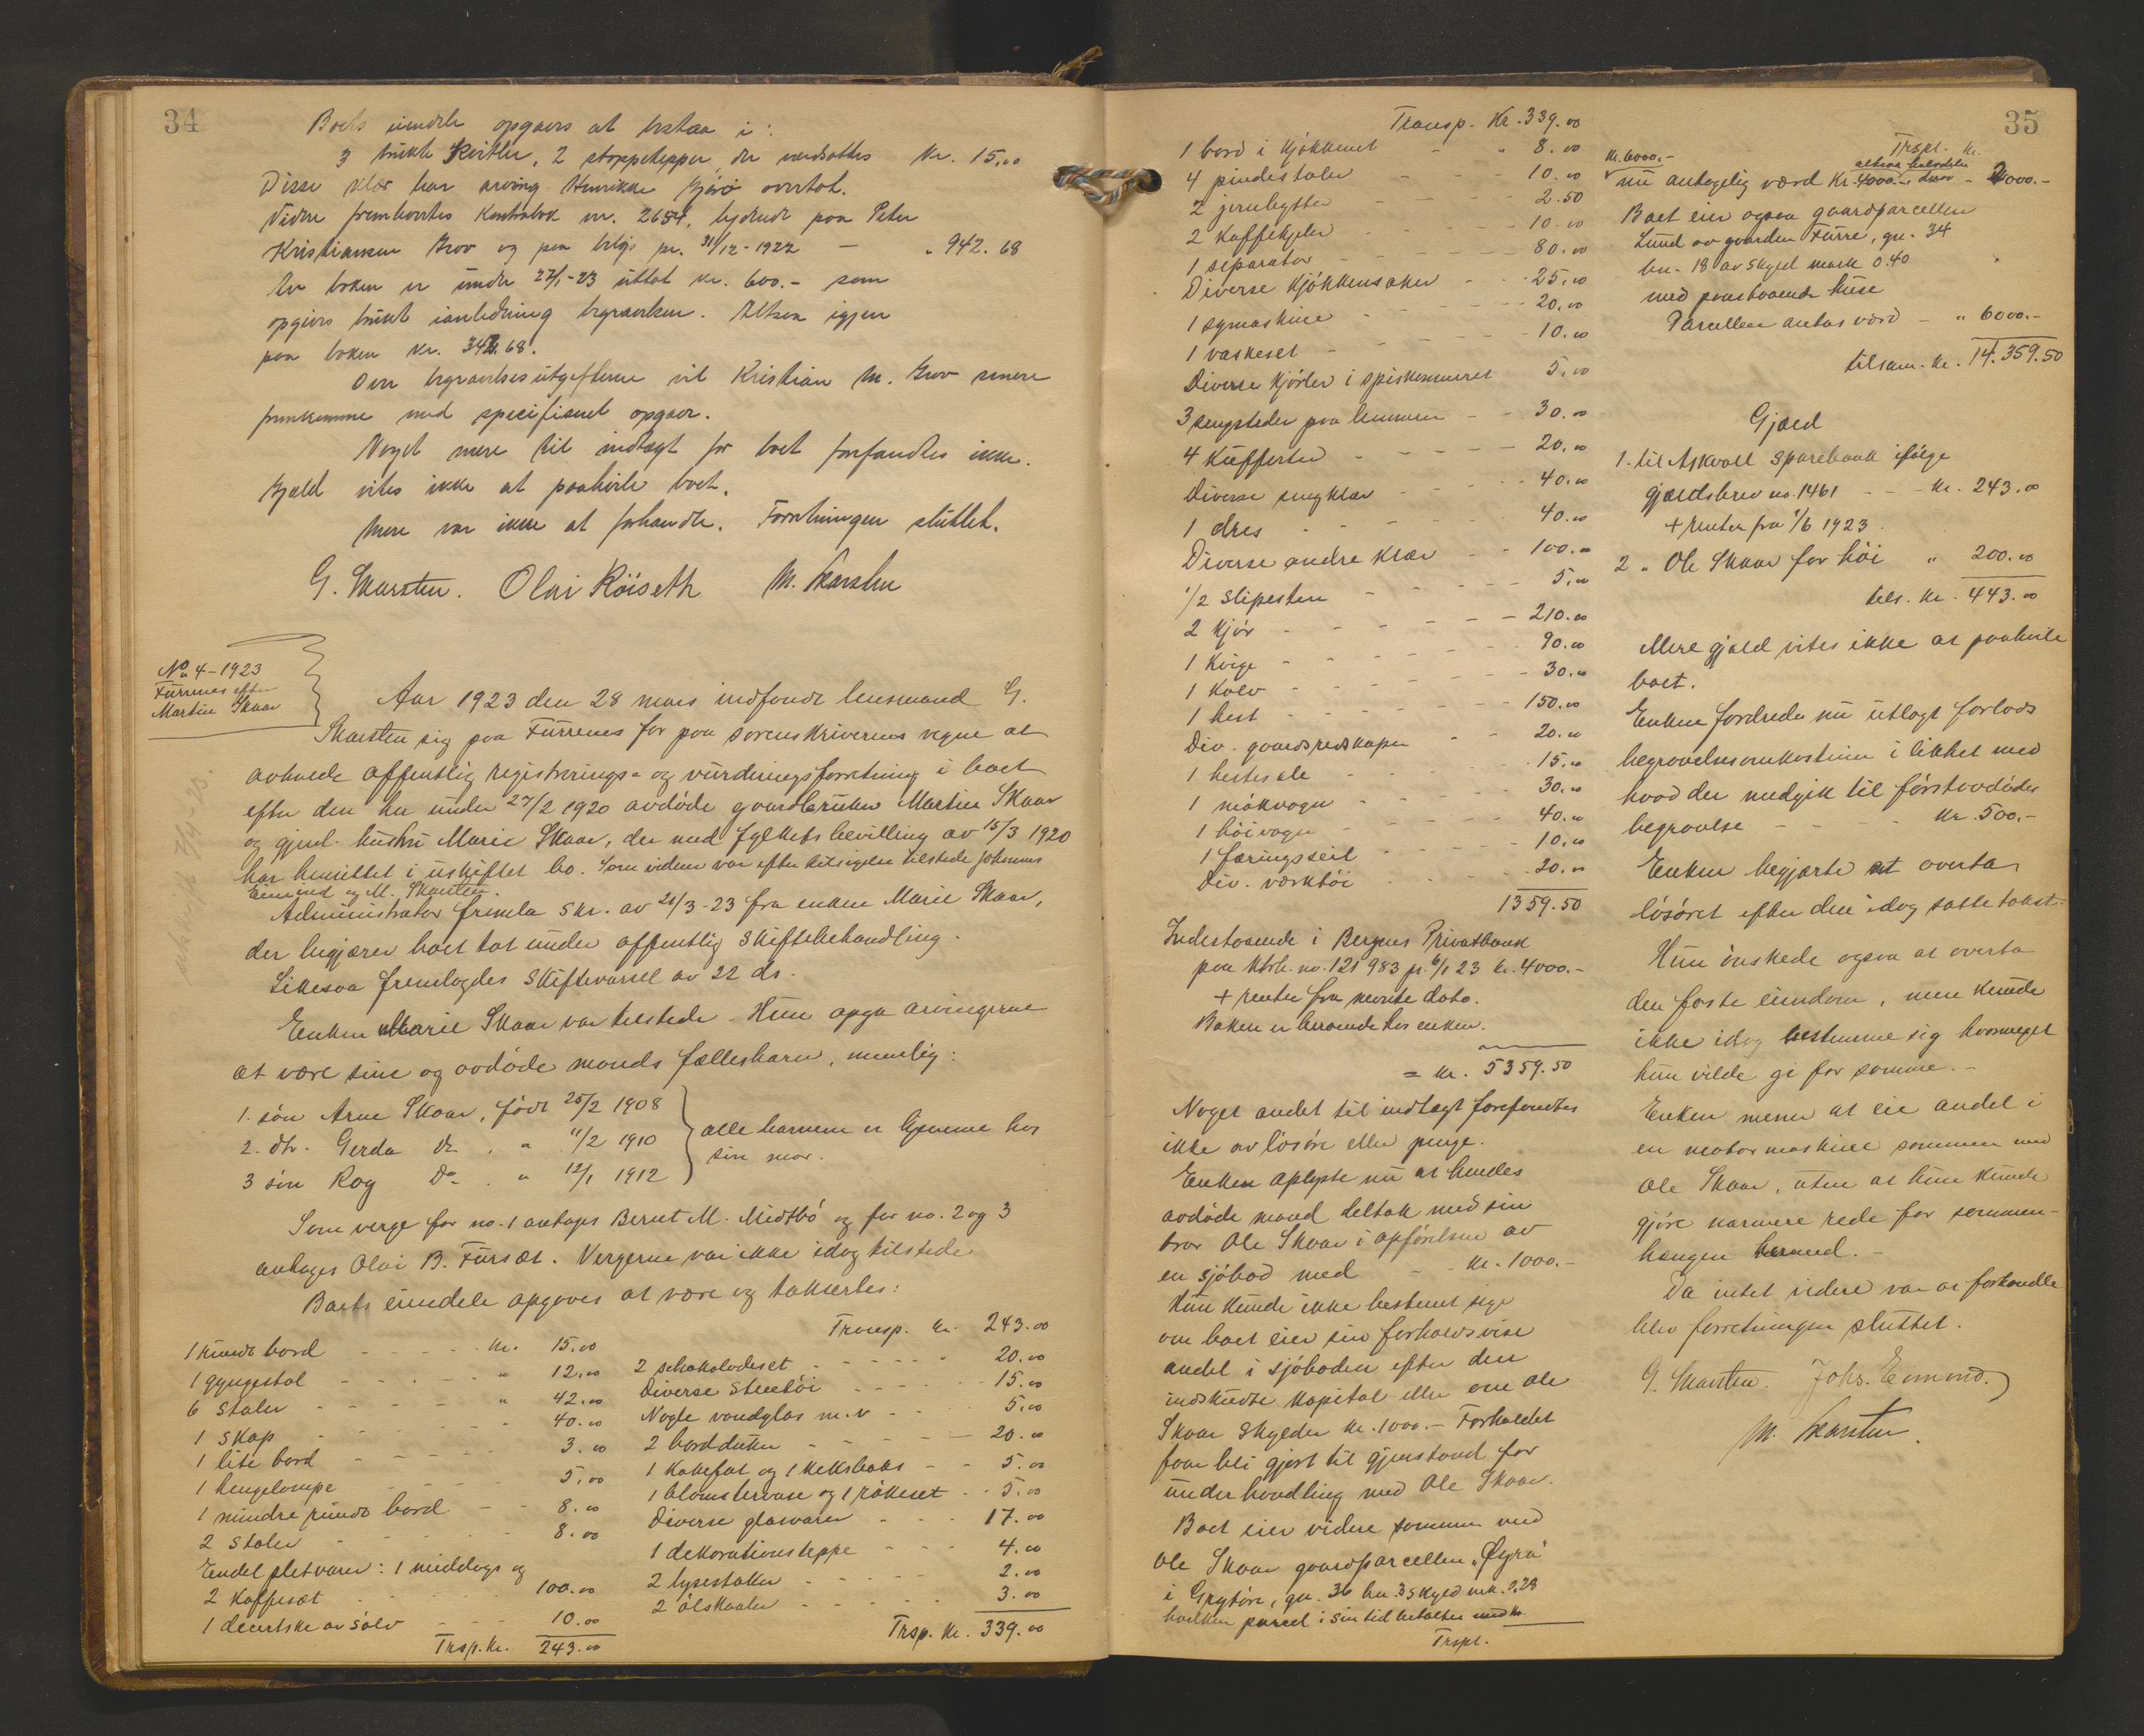 34
Boets eiendele opgaves at bestaa i:
3 brukte kvitler, 2 stoppetepper, der verdsattes Kr. 15.00
Disse klær har arving Henrikke Gjörö overtat.
Videre fremkortes Kontrabok nr. 2654, lydende paa Peter
Kristiansen Grov og paa beløp pr. 31/12-1922 — " 942.68
Av boken er under 27/1-23 uttat kr. 600.- som
opgives brukt i anledning begravelsen. Altsaa igjen
paa boken kr. 342.68.
Over begravelsesutgifterne vil Kristian M. Grov senere
fremkomme med specificeret opgave.
Noget mere til indtægt for boet forefandtes ikke.
Gjæld vites ikke at paahvile boet.
Mere var ikke at forhandle. Forretningen sluttet.
G. Skarsten. Olai Röiseth M. Skarsten
No 4-1923
Furrenes efter
Martin Skaar
Aar 1923 den 28 mars indfandt lensmand G.
Skarsten sig paa Furrenes for paa sorenskriverens vegne at
avholde offentlig registrerings- og vurderingsforretning i boet
efter den her under 27/2 1920 avdöde gaardbruker Martin Skaar
og gjenl. hustru Marie Skaar, der med fylkets bevilling av 15/3 1920
har hensittet i uskiftet bo. Som vidner var efter tilsigelse tilstede Johannes
Eimind og M. Skarsten.
Administrator fremla skr. av 21/3-23 fra enken Marie Skaar,
der begjærer boet tat under offentlig skiftebehandling.
Likesaa fremlagdes skiftevarsel av 22 ds.
Enken Marie Skaar var tilstede. Hun opga arvingerne
at være sine og avdöde mands fællesbarn, nemlig:
1. sön Arne Skaar, födt 25/2 1908
2. dtr. Gerda Do . " 11/2 1910
3 sön Roy Do . " 12/1 1912
alle barnene er hjemme hos
sin mor.
Som verge for no. 1 antages Bernt M. Midtbö og for no. 2 og 3
antages Olai B. Fursæt. Vergerne var ikke idag tilstede
Boets eiendele opgaves at være og takseertes:
1 rundt bord - - - - - kr. 15.00
1 gyngestol - - - - - " 12.00
6 stoler - - - - - " 42.00
1 skap - - - - - 40.00
1 lite bord - - - - 3.00
1 hengelampe - - - - 5.00
1 mindre rundt bord - - 8.00
2 stoler - - - - - 8.00
Endel pletvarer: 1 middags og
2 kaffesæt - - - - - 100.00
1 decertske av sölv - - - 10.00
Trsp. kr. 243.00
Transp. kr. 243.00
2 schokoladeset - - - - - " 20.00
Diverse stentöi - - - - 15.00
Nogle vandglas m.v - - 5.00
2 bordduker - - - - - 20.00
1 kakefat og 1 keksboks - - 5.00
1 blomstervase og 1 rökeset - - 5.00
Diverse glasvarer - - - 17.00
1 dekorationsteppe - - - 4.00
2 lysestaker - - - - - 2.00
2 ölskaaler - - - - - 3.00
Trsp. kr. 339.00
35
Transp. Kr. 339.00
1 bord i kjökkenet - " 8.00
4 pindestoler - - - 10.00
2 jernbytter - - - - 2.50
2 kaffekjeler - - - - 10.00
1 separator - - - - - 80.00
Diverse kjökkensaker - - 25.00
1 symaskine - - - - 20.00
1 vaskeset - - - - - 10.00
Diverse kjörler i spiskammeret 5.00
3 sengsteder paa lemmen - - 30.00
4 kufferter - - - - - 20.00
Diverse sengklær - - - - 40.00
1 dres - - - - - 40.00
Diverse andre klær - - 100.00
1/2 slipesten - - - - - 5.00
2 kjör - - - - - - 210.00
1 kvige - - - - - - 90.00
1 kalv - - - - - - 30.00
1 hest - - - - - - 150.00
Div. gaardsredskaper - - 20.00
1 hestesele - - - - - 15.00
1 mökvogn - - - - - 30.00
1 höivogn - - - - - 40.00
1 færingsseil - - - - - 10.00
Div. værktöi - - - - - 20.00
1359.50
Indestaaende i Bergens Privatbank
paa ktrb. no. 121983 pr. 6/1 23 kr. 4000.-
+ renter fra nævnte dato.
Boken er beroende hos enken.
= kr. 5359.50
Noget andet til indtægt forefandtes
ikke av lösöre eller penge.
Enken oplyste nu at hendes
avdöde mand deltok med sin
bror Ole Skaar i opförelsen av
en sjöbod med - - kr. 1000.-
Hun kunde ikke bestemt sige
om boet eier sin forholdsvise
andel i sjöboden efter den
indskudte kapital eller om Ole
Skaar skylder kr. 1000.- Forholdet
faar bli gjort til gjenstand for
underhandling med Ole Skaar.
Boet eier videre sammen med
Ole Skaar gaardparcellen "Øyra"
i Grytöre, gn. 36 bn. 3 skyld mk. 0.28
hvilken parcel i sin tid betaltes med kr.
Trspt.
Trspt. kr.
kr. 6000.-
nu antagelig værd kr. 4000.- - 3000.-
Boet eier ogsaa gaardparcellen
Lund av gaarden Furre, gn. 34
bn. 18 av skyld mark 0.40
med paastaaende huse
Parcellen antas værd - " 6000.-
tilsam. kr. 14.359.50
Gjæld
1. til Askvoll sparebank ifölge
gjældsbrev no. 1461 - - - kr. 243.00
+ renter fra 1/6 1923.
2 " Ole Skaar for höi " 200.00
tils. kr. 443.00
Mere gjæld vites ikke at paahvile
boet.
Enken fordrede nu utlagt forlods
begravelsesomkostninger i likhet med
hvad der medgik til förstavdödes
begravelse - - - - kr. 500.-
Enken begjærte at overta
lösöret efter den idag satte takst.
Hun önskede ogsaa at overta
den faste eiendom, men kunde
ikke idag bestemme sig hvormeget
hun vilde gi for samme. -
Enken mener at eie andel i
en motormaskine sammen med
Ole Skaar, uten at hun kunde
gjöre nærmere rede for sammen-
hængen hermed. -
Da intet videre var at forhandle
blev forretningen sluttet.
G. Skarsten. Johs. Eimind.
M. Skarsten.